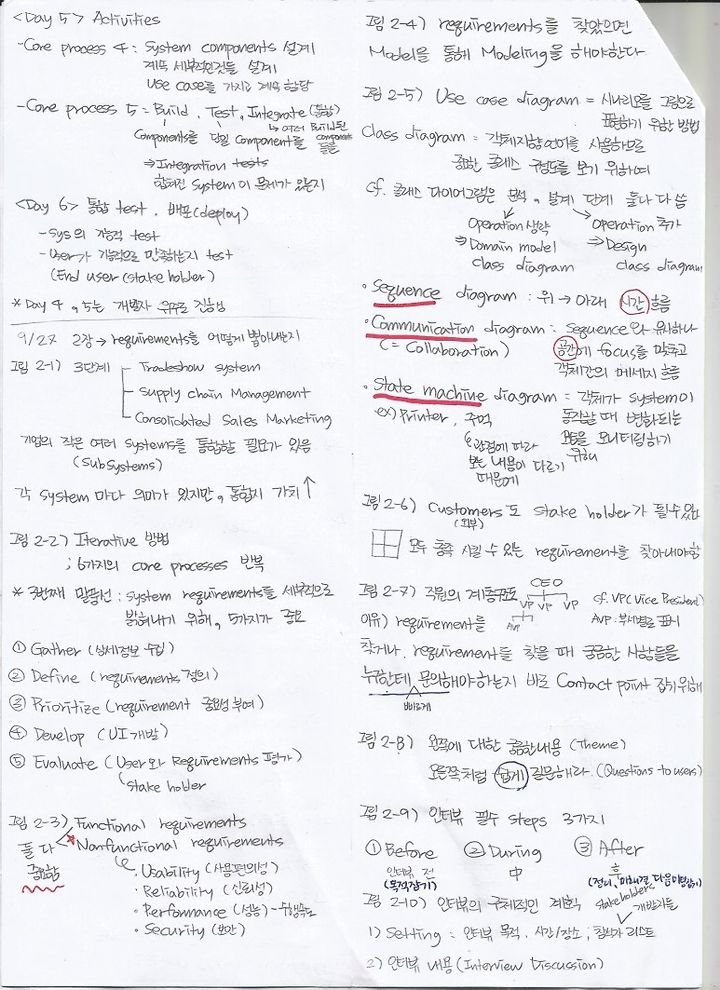 <Day 5> Activities
-Core process 4: System components 설계
계속 세부적인것들 설계
Use case를 가지고 계속 하달
-Core process 5 = Build, Test, Integrate (통합)
Components를 단일 Component를 여러 Build된 components들을
⇒ Integration tests
합해진 System이 문제가 있는지
<Day 6> 통합 test, 배포(deploy)
-Sys의 기능적 test
-User가 기능적으로 만족하는지 test
(End user (stake holder)
* Day 4, 5는 개발자 위주로 진행함
9/27 2장 → requirements를 어떻게 뽑아내는지
그림 2-1) 3단계
Tradeshow system
Supply chain Management
Consolidated Sales Marketing
기업의 작은 여러 Systems를 통합할 필요가 있음
(Subsystems)
각 System 마다 의미가 있지만, 통합시 가치↑
그림 2-2) Iterative 방법
; 6가지의 core processes 반복
* 두번째 말풍선 : system requirements를 세부적으로
밝혀내기 위해, 5가지가 중요
① Gather (상세정보 수집)
② Define (requirements 정의)
③ Prioritize (requirement 중요성 부여)
④ Develop (UI 개발)
⑤ Evaluate (User와 Requirements 평가)
stake holder
그림 2-3) Functional requirements
둘 다 중요함
* Nonfunctional requirements
· Usability (사용편의성)
· Reliability (신뢰성)
· Performance (성능) - 수행속도
· Security (보안)
그림 2-4) requirements를 찾았으면
Model을 통해 Modeling을 해야한다
그림 2-5) Use case diagram = 시나리오를 그림으로
표현하기 위한 방법
Class diagram = 객체지향언어를 사용하므로
중요한 클래스 구성도를 보기 위하여
cf. 클래스 다이어그램은 분석, 설계 단계 둘다 다 씀
Operation 생략 Operation 추가
⇒ Domain model ⇒ Design
class diagram class diagram
· Sequence diagram : 위 → 아래 시간 흐름
· Communication diagram : Sequence와 유사하나
(= Collaboration) 공간에 focus를 맞추고
객체간의 메세지 흐름
· State machine diagram = 객체가 System이
ex) Printer, 주먹 동작할 때 변화되는
관점에 따라 모습을 모니터링하기
보는 내용이 다르기 위해
때문에
그림 2-6) Customers도 stake holder가 될 수 있다
(외부)
모두 충족 시킬 수 있는 requirement를 찾아내야함
그림 2-7) 직원의 계층구조 CEO
VP VP VP cf. VP (Vice President)
AVP AVP : 부서별로 표시
이유) requirement를
찾거나, requirement를 찾을 때 궁금한 사항들을
누구한테 문의해야하는지 바로 Contact point 잡기위해
빠르게
그림 2-8) 왼쪽에 대한 궁금한내용 (Theme)
오른쪽처럼 쉽게 질문해라. (Questions to users)
그림 2-9) 인터뷰 필수 steps 3가지
① Before ② During ③ After
인터뷰 전 中 후
(목적잡기) (정리, 미해결, 다음미팅잡기)
그림 2-10) 인터뷰의 구체적인 계획 stakeholders
개발자들
1) Setting : 인터뷰 목적, 시간/장소, 참석자 리스트
2) 인터뷰 내용 (Interview Discussion)